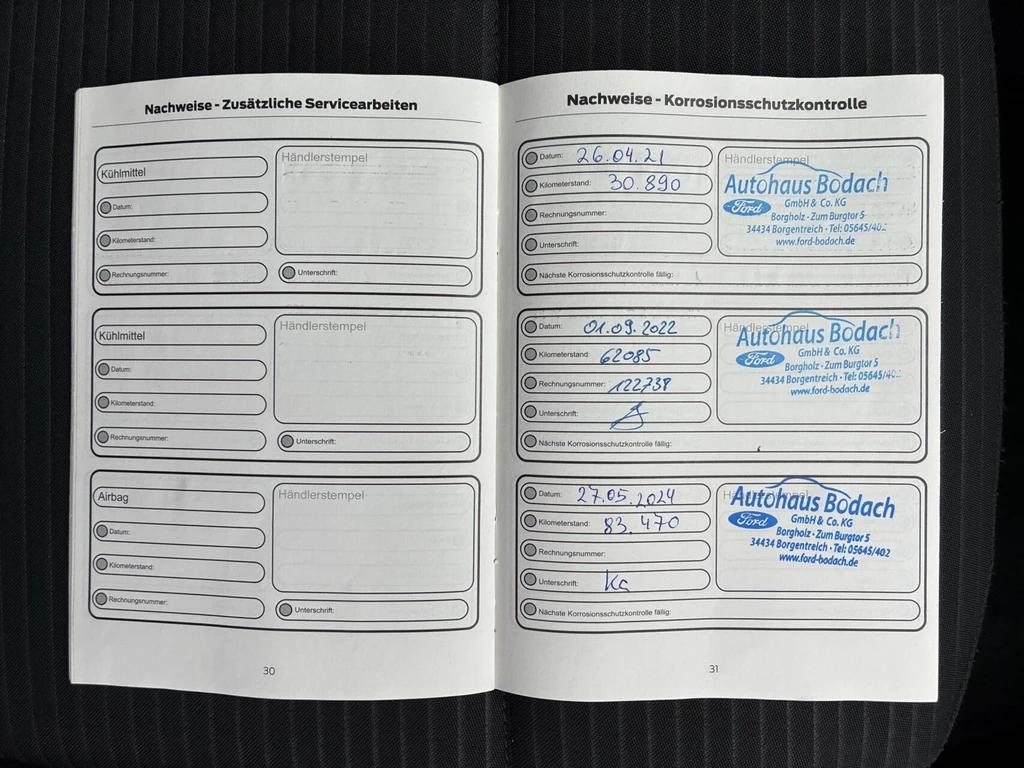 Nachweise - Zusätzliche Servicearbeiten
Kühlmittel
Datum:
Kilometerstand:
Rechnungsnummer:
Händlerstempel
Unterschrift:
Kühlmittel
Datum:
Kilometerstand:
Rechnungsnummer:
Händlerstempel
Unterschrift:
Airbag
Datum:
Kilometerstand:
Rechnungsnummer:
Händlerstempel
Unterschrift:
30
Nachweise - Korrosionsschutzkontrolle
Datum: 26.04.21
Kilometerstand: 30.890
Rechnungsnummer:
Unterschrift:
Nächste Korrosionsschutzkontrolle fällig:
Händlerstempel
Autohaus Bodach
Ford
GmbH & Co. KG
Borgholz · Zum Burgtor 5
34434 Borgentreich · Tel: 05645/402
www.ford-bodach.de
Datum: 01.09.2022
Kilometerstand: 62085
Rechnungsnummer: 122738
Unterschrift:
Nächste Korrosionsschutzkontrolle fällig:
Händlerstempel
Autohaus Bodach
Ford
GmbH & Co. KG
Borgholz · Zum Burgtor 5
34434 Borgentreich · Tel: 05645/402
www.ford-bodach.de
Datum: 27.05.2024
Kilometerstand: 83.470
Rechnungsnummer:
Unterschrift:
Nächste Korrosionsschutzkontrolle fällig:
Händlerstempel
Autohaus Bodach
Ford
GmbH & Co. KG
Borgholz · Zum Burgtor 5
34434 Borgentreich · Tel: 05645/402
www.ford-bodach.de
31